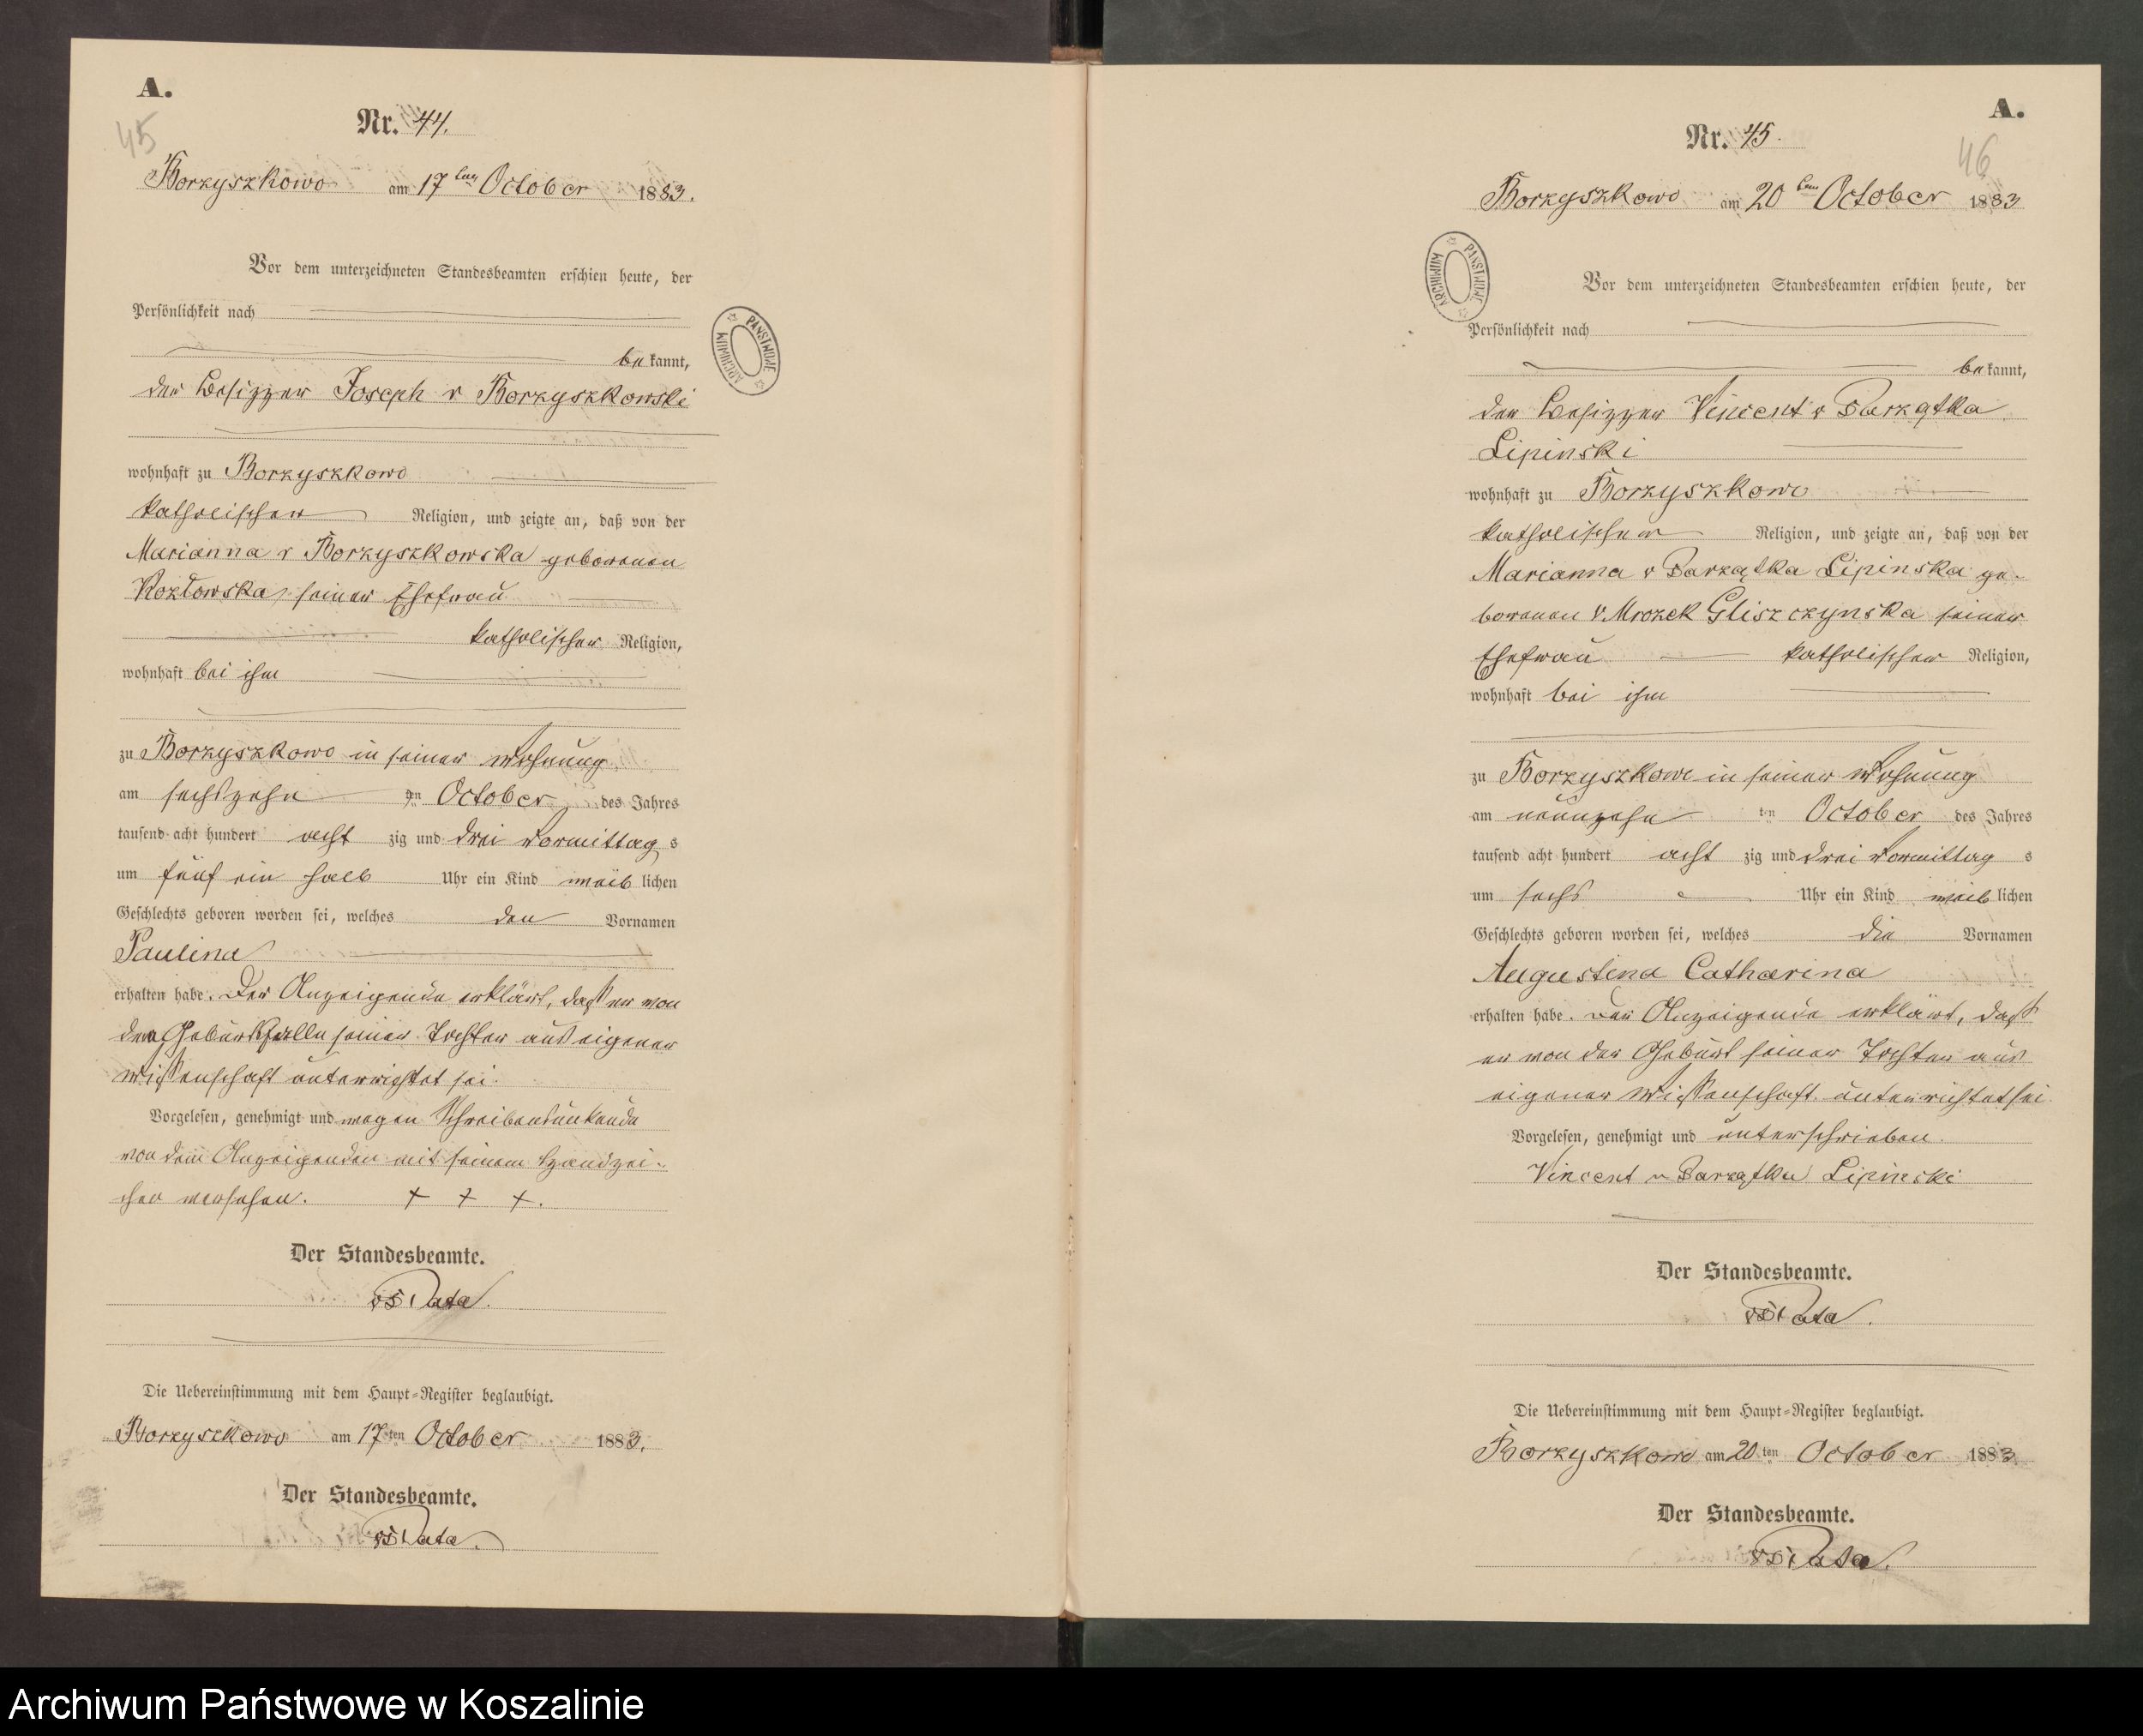 A.
45
Nr. 44.
Borzyszkowo am 17ten October 1883.
Vor dem unterzeichneten Standesbeamten erschien heute, der
Persönlichkeit nach
be kannt,
der Besitzer Joseph v Borzyszkowski
wohnhaft zu Borzyszkowo
katholischer Religion, und zeigte an, daß von der
Marianna v Borzyszkowska geborenen
Kozłowska, seiner Ehefrau
katholischer Religion,
wohnhaft bei ihm
zu Borzyszkowo in seiner Wohnung
am sechszehn ten October des Jahres
tausend acht hundert acht zig und drei Vormittag s
um fünf ein halb Uhr ein Kind weib lichen
Geschlechts geboren worden sei, welches den Vornamen
Paulina
erhalten habe. Der Anzeigende erklärt, daß er von
dem Geburtsfalle seiner Tochter aus eigener
Wissenschaft unterrichtet sei.
Vorgelesen, genehmigt und wegen Schreibensunkunde
von dem Anzeigenden mit seinem Handzei-
chen versehen. + + +.
Der Standesbeamte.
Data.
Die Uebereinstimmung mit dem Haupt-Register beglaubigt.
Borzyszkowo am 17ten October 1883.
Der Standesbeamte.
Data.
ARCHIWUM PAŃSTWOWE
A.
46
Nr. 45.
Borzyszkowo am 20ten October 1883
ARCHIWUM PAŃSTWOWE
Vor dem unterzeichneten Standesbeamten erschien heute, der
Persönlichkeit nach
be kannt,
der Besitzer Vincent v Parzątka
Lipinski
wohnhaft zu Borzyszkowo
katholischer Religion, und zeigte an, daß von der
Marianna v Parzątka Lipinska ge-
borenen v Mrozek Gliszczynska seiner
Ehefrau katholischer Religion,
wohnhaft bei ihm
zu Borzyszkowo in seiner Wohnung
am neunzehn ten October des Jahres
tausend acht hundert acht zig und drei Vormittag s
um sechs Uhr ein Kind weib lichen
Geschlechts geboren worden sei, welches die Vornamen
Augustina Catharina
erhalten habe. Der Anzeigende erklärt, daß
er von der Geburt seiner Tochter aus
eigener Wissenschaft unterrichtet sei.
Vorgelesen, genehmigt und unterschrieben.
Vincent v Parzątka Lipinski
Der Standesbeamte.
Data.
Die Uebereinstimmung mit dem Haupt-Register beglaubigt.
Borzyszkowo am 20ten October 1883.
Der Standesbeamte.
Data.
Archiwum Państwowe w Koszalinie